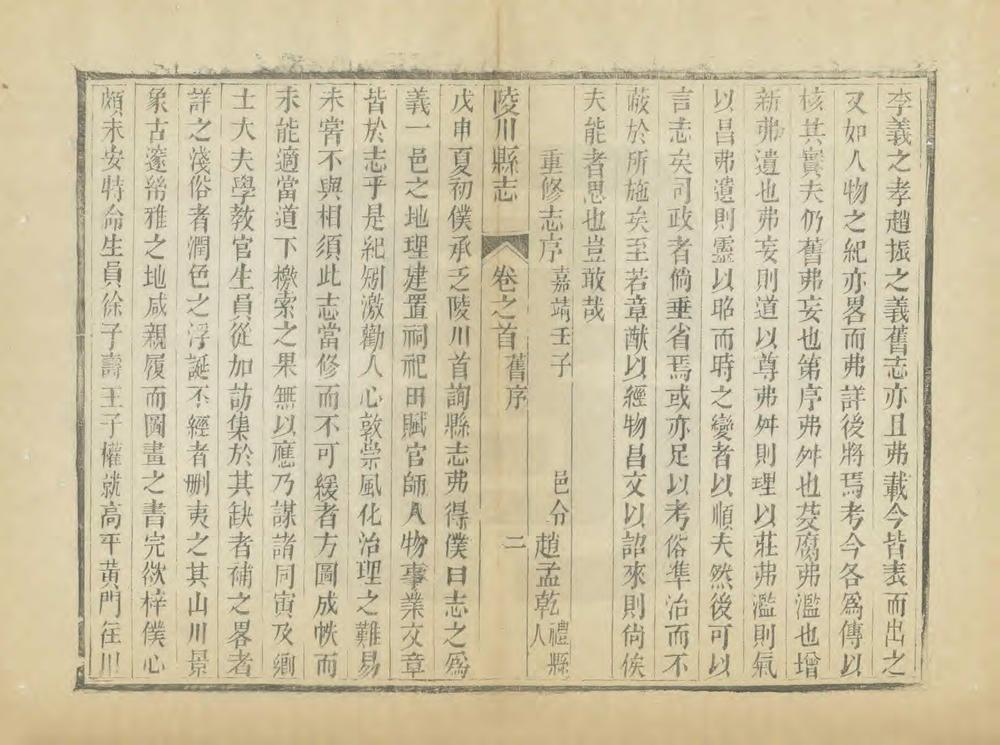 李義之孝趙振之義舊志亦且弗載今皆表而出之
又如人物之紀亦畧而弗詳後將焉考今各爲傳以
核其實夫仍舊弗妄也第序弗舛也芟腐弗濫也增
新弗遺也弗妄則道以尊弗舛則理以莊弗濫則氣
以昌弗遺則靈以昭而時之變者以順夫然後可以
言志矣司政者倘垂省焉或亦足以考俗準治而不
蔽於所施矣至若章猷以經物昌文以詔來則尙俟
夫能者思也豈敢哉
重修志序 嘉靖壬子 邑令 趙孟乾 禮縣人
陵川縣志 卷之首 舊序 二
戊申夏初僕承乏陵川首詢縣志弗得僕曰志之爲
義一邑之地理建置祠祀田賦官師人物事業文章
皆於志乎是紀刱激勸人心敦崇風化治理之難易
未甞不與相須此志當修而不可緩者方圖成帙而
未能適當道下檄索之果無以應乃謀諸同寅及鄕
士大夫學教官生員從加訪集於其缺者補之畧者
詳之淺俗者潤色之浮誕不經者删夷之其山川景
象古邃幣雅之地咸親履而圖畫之書完欲梓僕心
頗未安特命生員徐子壽王子權就高平黃門在川